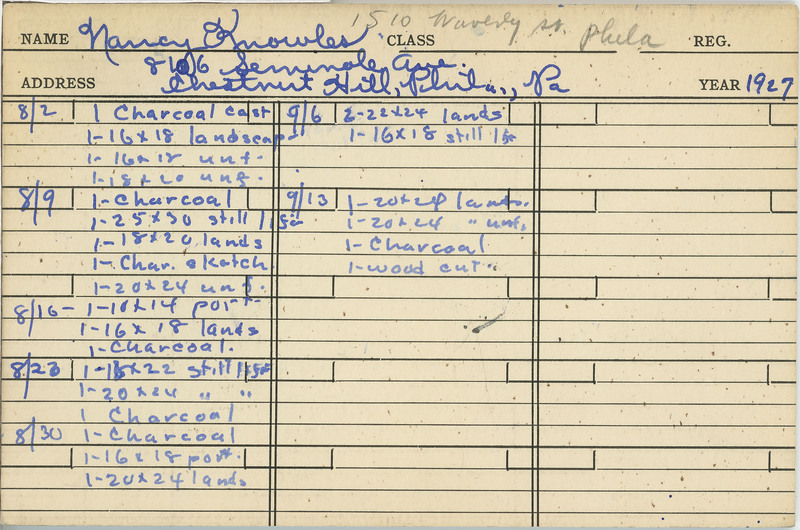 1510 Waverly St. Phila
NAME Nancy Knowles CLASS REG.
8106 Seminole Ave.
ADDRESS Chestnut Hill, Phila., Pa YEAR 1927
8/2 1 Charcoal cast
1-16x18 landscap
1-16x18 unf.
1-18x20 unf.
8/9 1-Charcoal
1-25x30 still life
1-18x20 lands
1-Char. sketch
1-20x24 unf.
8/16- 1-10x14 port-
1-16x18 lands
1-Charcoal.
8/23 1-18x22 still life
1-20x24 " "
1 Charcoal
8/30 1-Charcoal
1-16x18 port.
1-20x24 lands
9/6 2-22x24 lands
1-16x18 still life
9/13 1-20x24 lands.
1-20x24 " unf.
1-Charcoal
1-wood cut